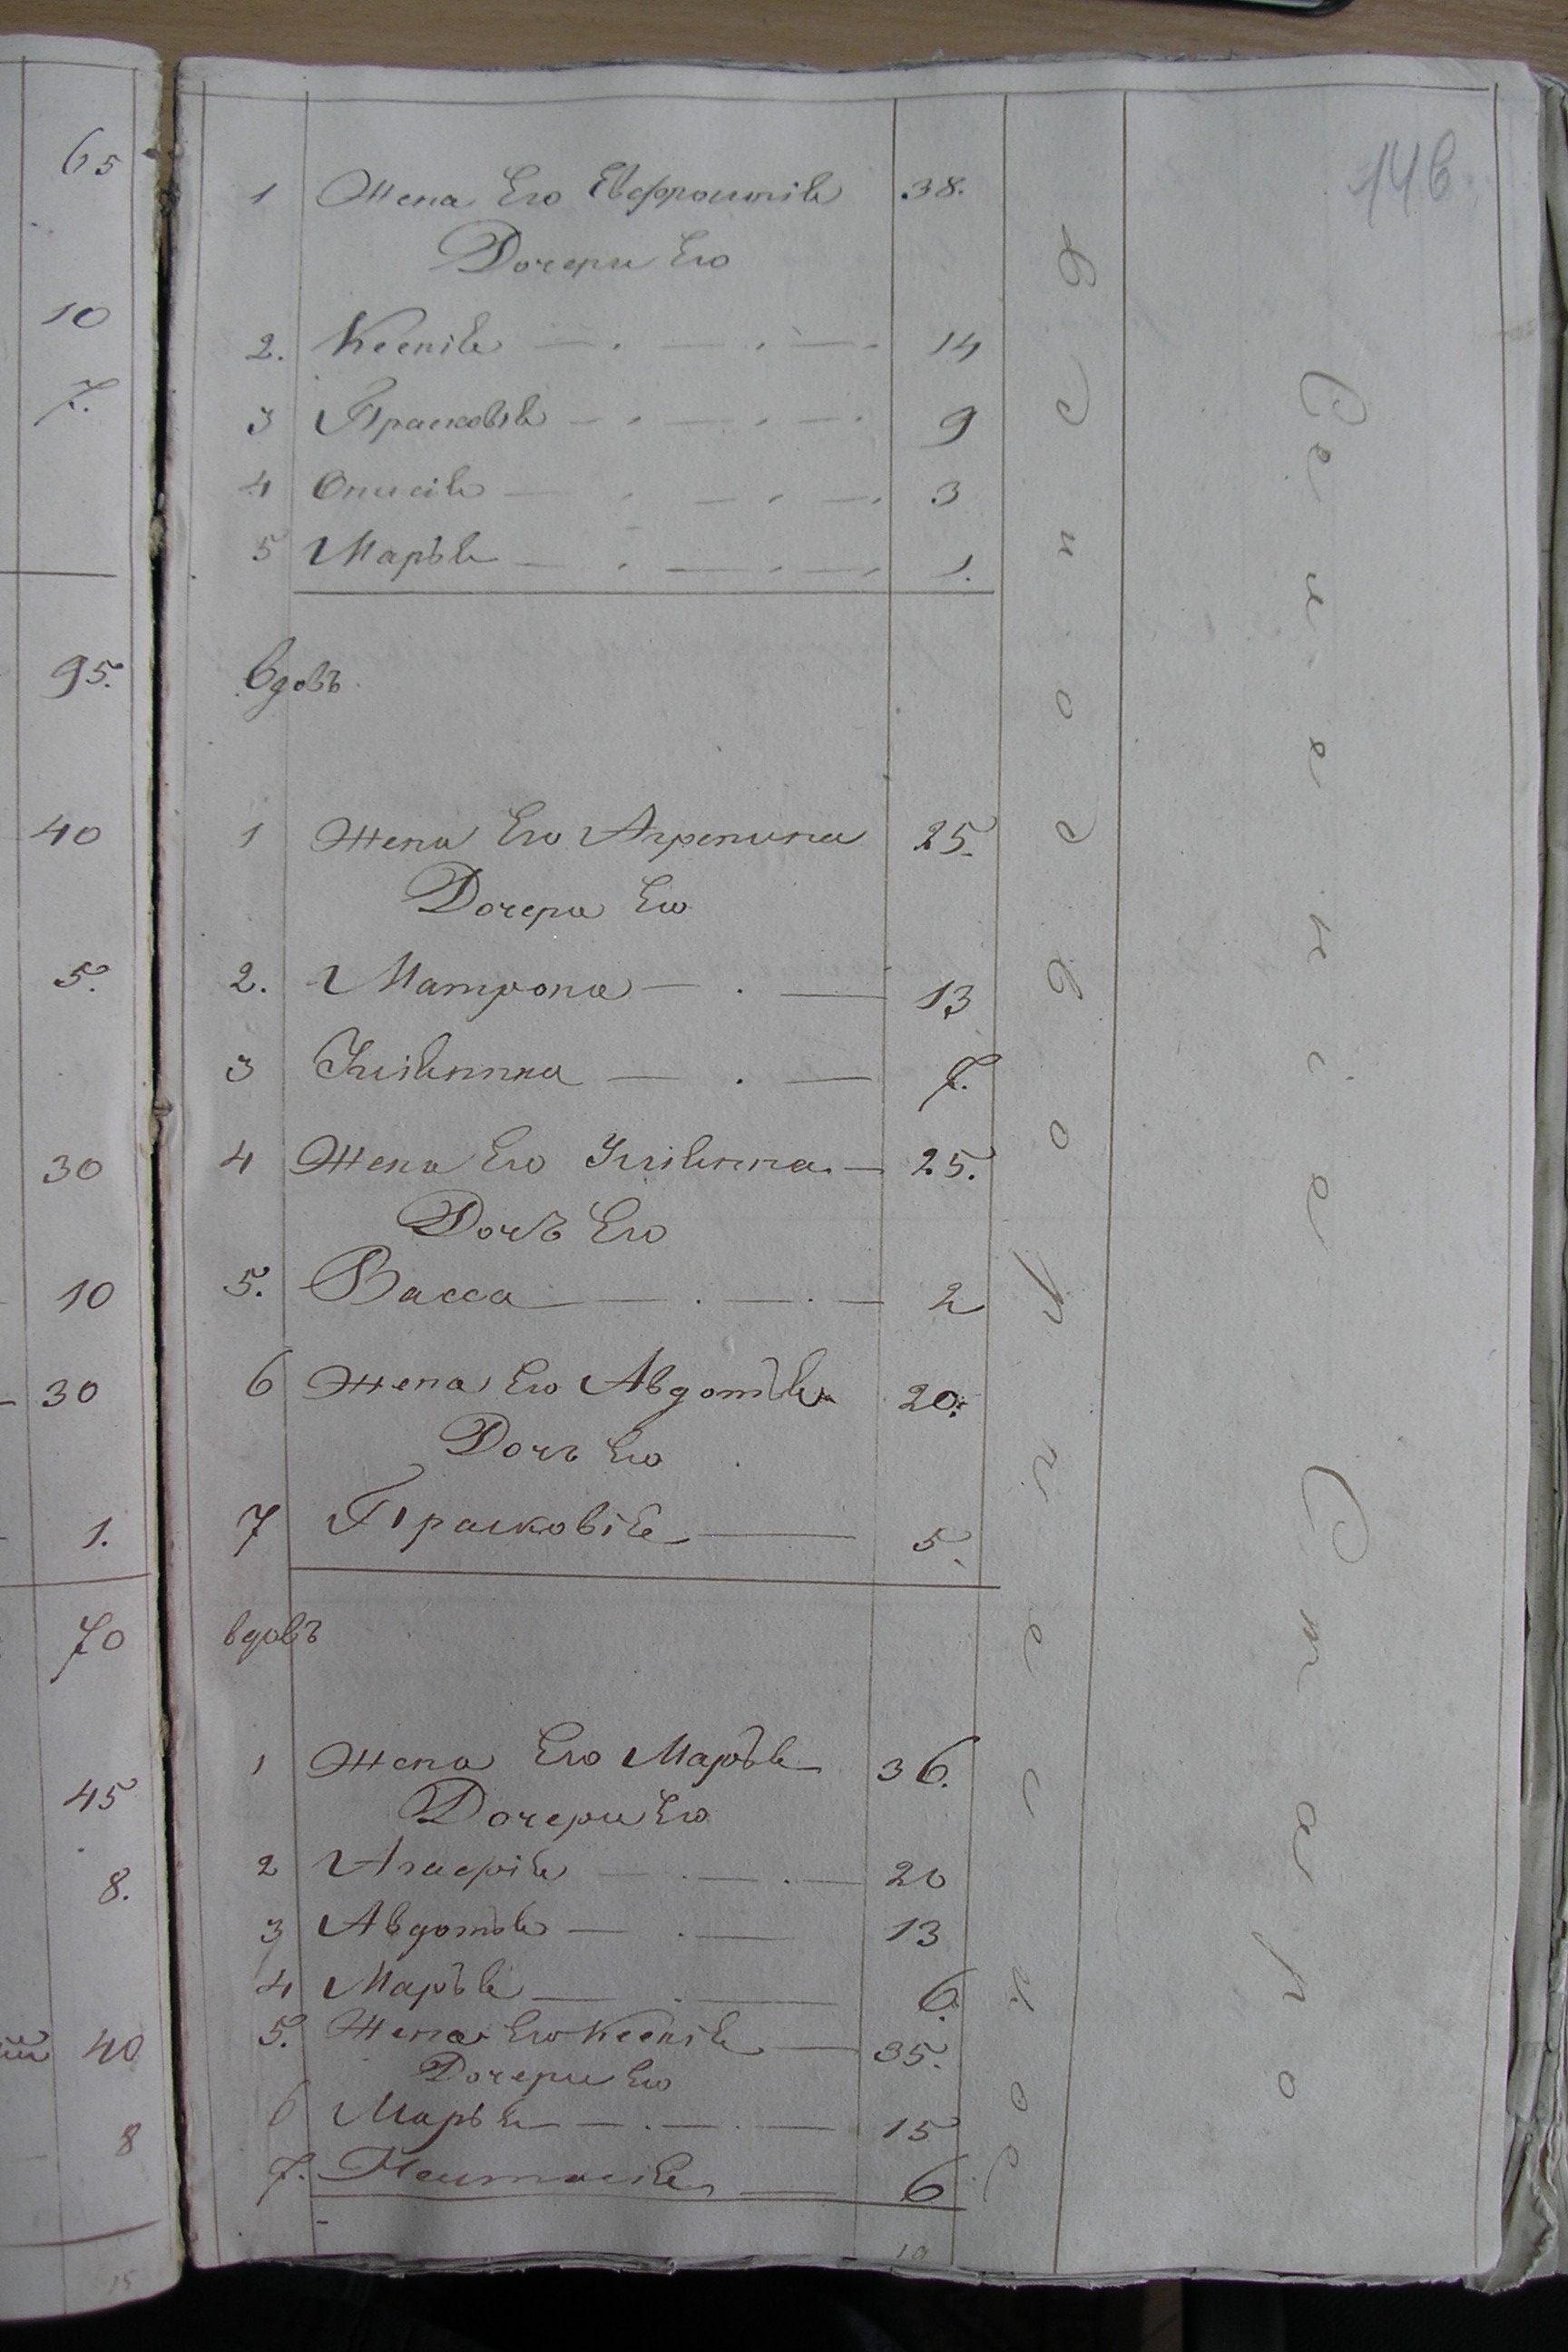 65
10
7.
95.
40
5.
30
10
30
1.
70
45
8.
40
8
15
146
1 Жена Его Евфросинія 38.
Дочери Его
2. Ксенія 14
3 Прасковія 9
4 Анисія 3
5 Марья 1.
вдовъ
1 Жена Его Агрепина 25.
Дочери Его
2. Матрона 13
3 Ульянна 7.
4 Жена Его Ульянна 25.
Дочь Его
5. Васса 2
6 Жена Его Авдотья 20.
Дочь Его
7 Прасковія 5.
вдовъ
1 Жена Его Марья 36.
Дочери Его
2 Агафія 20
3 Авдотья 13
4 Марья 6.
5. Жена Его Ксенія 35.
Дочери Его
6 Марья 15
7. Настасія 6
19
Семенія Стар о